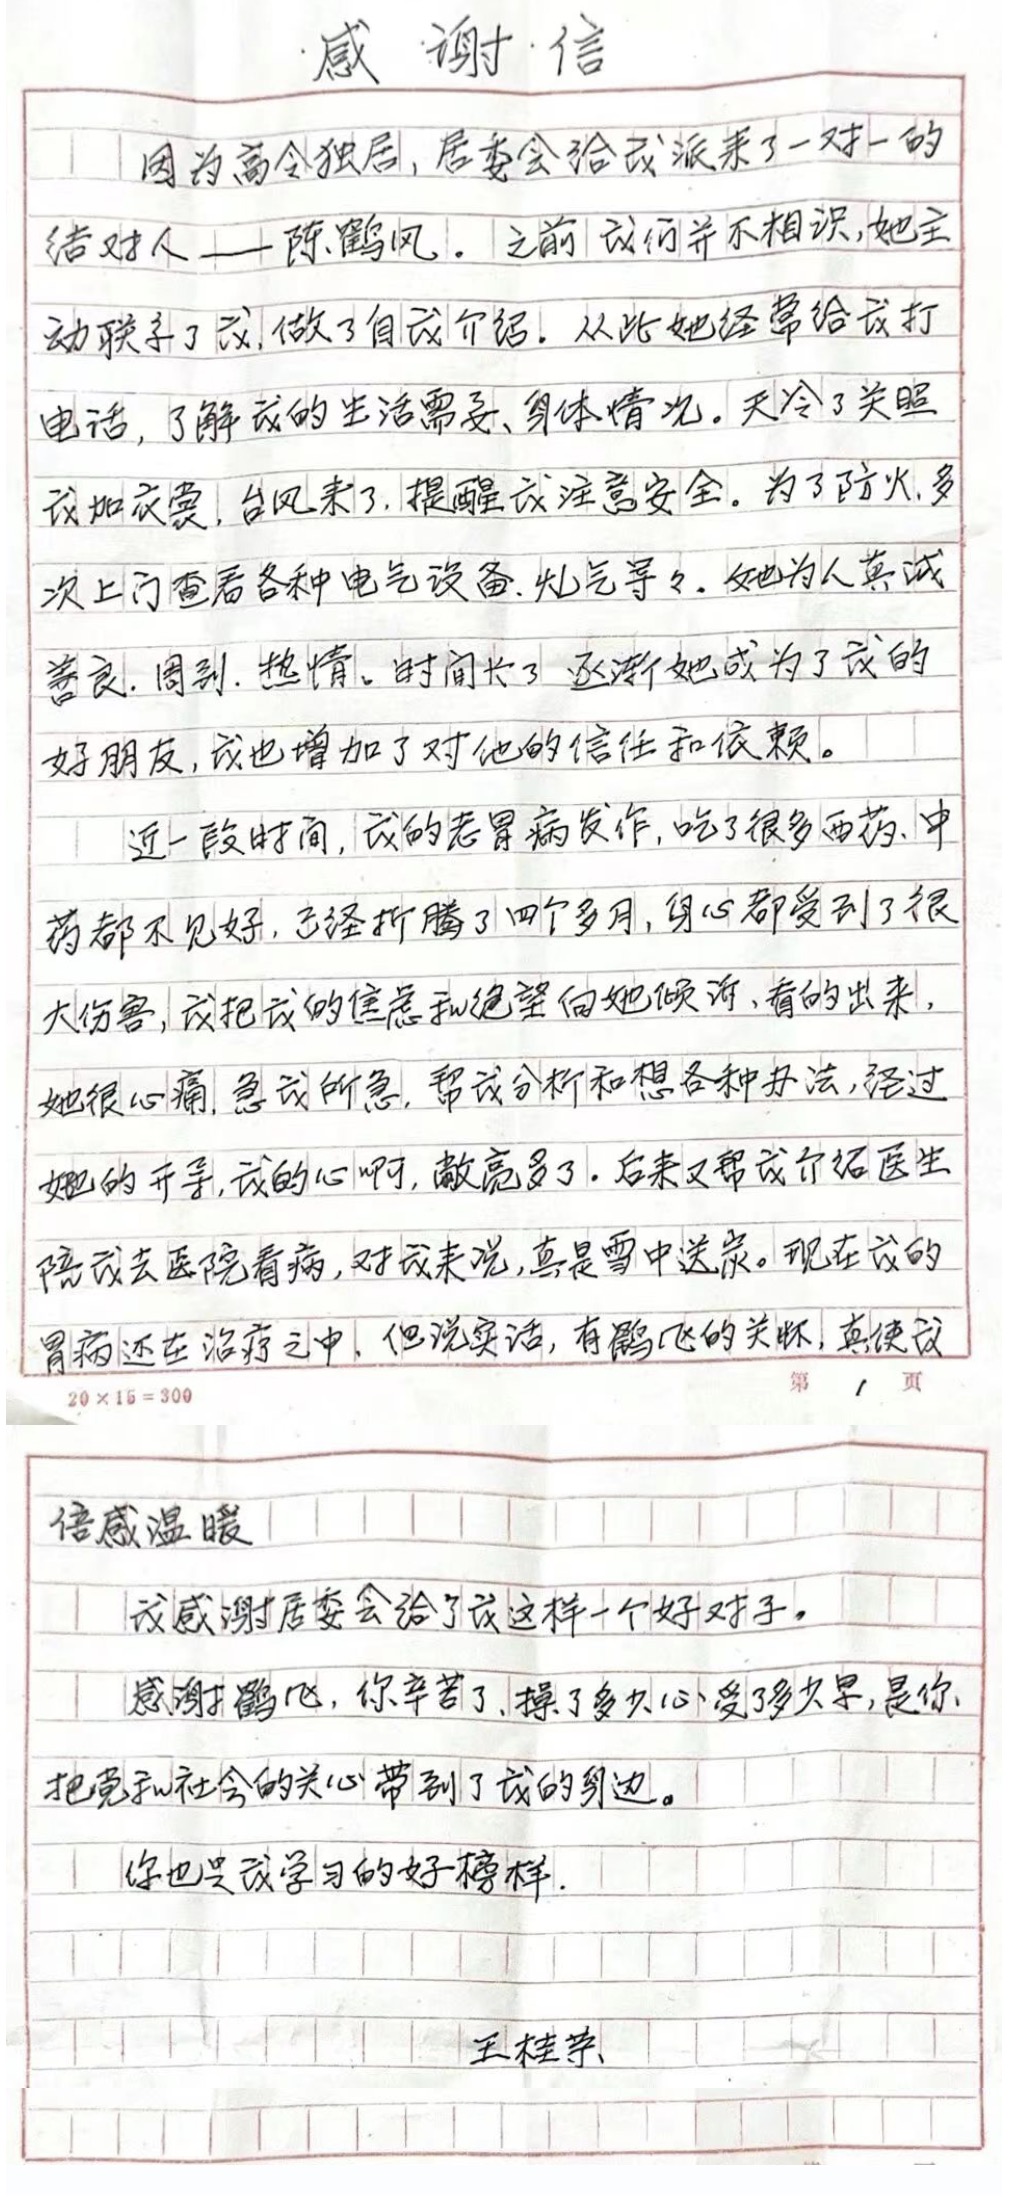 感谢信
因为高令独居，居委会给我派来了一对一的
结对人——陈鹤风。之前我们并不相识，她主
动联系了我，做了自我介绍。从此她经常给我打
电话，了解我的生活需要、身体情况。天冷了关照
我加衣裳，台风来了，提醒我注意安全。为了防火，多
次上门查看各种电气设备、灶气等々。她为人真诚
善良、周到、热情。时间长了逐渐她成为了我的
好朋友，我也增加了对他的信任和依赖。
近一段时间，我的老胃病发作，吃了很多西药、中
药都不见好，已经折腾了四个多月，身心都受到了很
大伤害，我把我的焦虑和绝望向她倾诉，看的出来，
她很心痛，急我所急，帮我分析和想各种办法，经过
她的开导，我的心啊，敞亮多了。后来又帮我介绍医生
陪我去医院看病，对我来说，真是雪中送炭。现在我的
胃病还在治疗之中，但说实话，有鹤飞的关怀，真使我
20×15=300
第 1 页
倍感温暖
我感谢居委会给了我这样一个好对子。
感谢鹤飞，你辛苦了、操了多少心、受了多少累，是你、
把党和社会的关心带到了我的身边。
你也是我学习的好榜样.
王桂芬